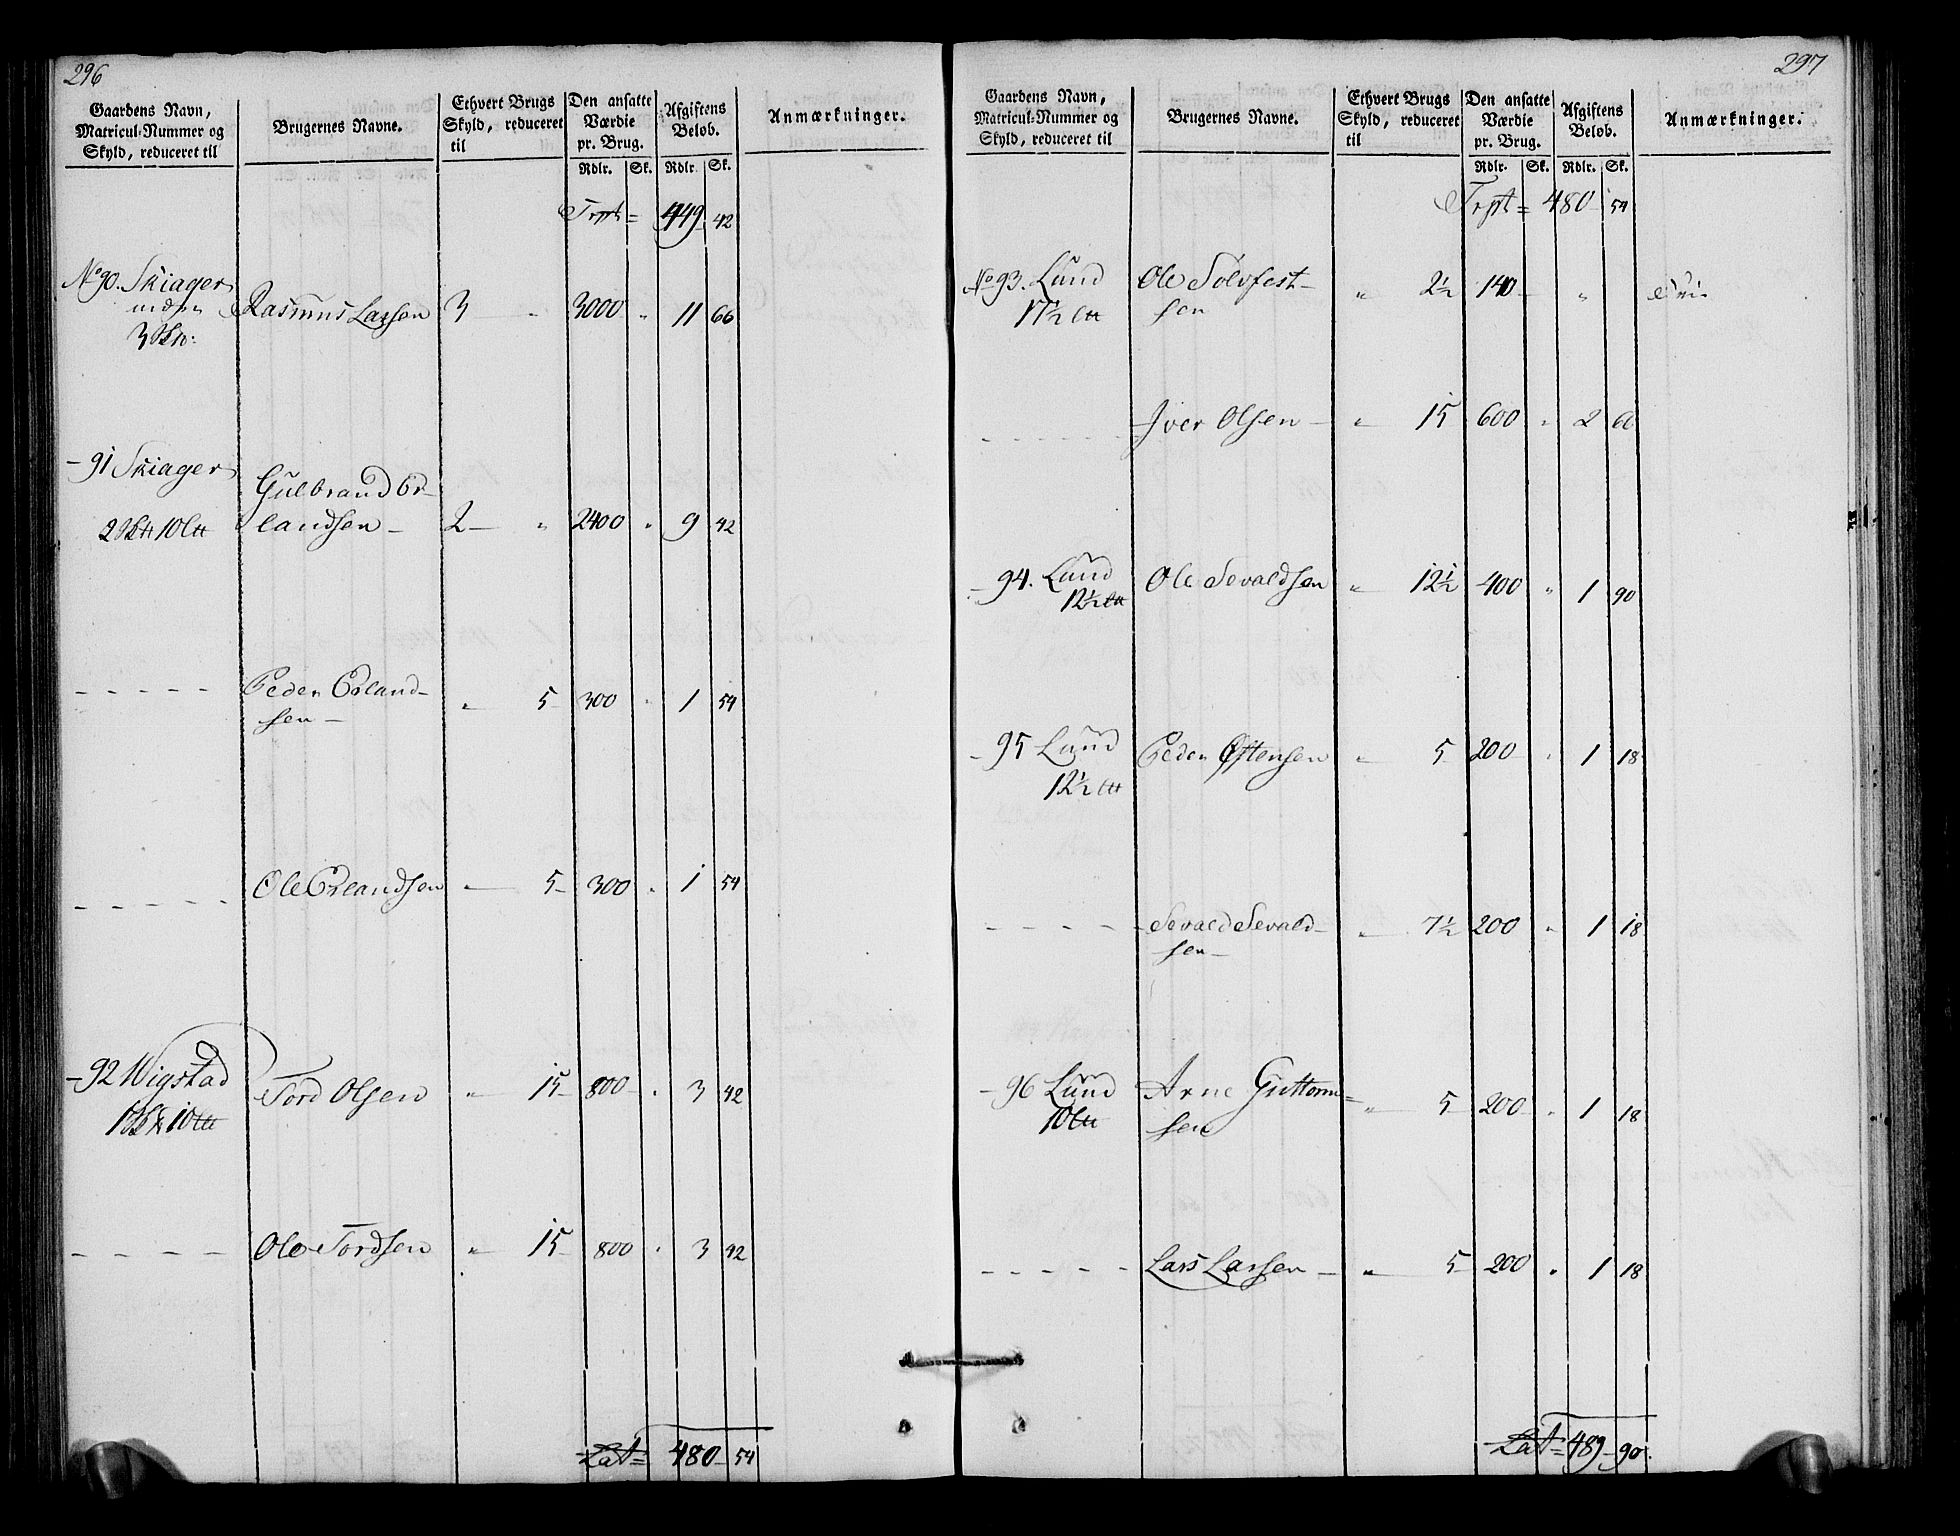 296
Gaardens Navn, Matricul-Nummer og Skyld, reduceret til | Brugernes Navne. | Ethvert Brugs Skyld, reduceret til | Den ansatte Værdie pr. Brug. Rdlr. Sk. | Afgiftens Beløb. Rdlr. Sk. | Anmærkninger.
Trpt = 449 42
No 90. Skiager
Rasmus Larsen 3 " 3000 " 11 66
- 91 Skiager
Gulbrand Er-
landsen - 2 - " 2400 " 9 42
Peder Erland- " 5 300 " 1 54
sen -
Ole Erlandsen " 5 300 " 1 54
- 92 Wigstad
Tord Olsen " 15 800 " 3 42
Ole Tordsen " 15 800 " 3 42
Lat = 480 54
297
Gaardens Navn, Matricul-Nummer og Skyld, reduceret til | Brugernes Navne. | Ethvert Brugs Skyld, reduceret til | Den ansatte Værdie pr. Brug. Rdlr. Sk. | Afgiftens Beløb. Rdlr. Sk. | Anmærkninger.
Trpt = 480 54
No 93. Lund Ole Sølvfest- " 2½ 140 "
17½ sen
Iver Olsen - " 15 600 " 2 60
- 94. Lund Ole Sevaldsen " 12½ 400 " 1 90
12½
- 95 Lund Peder Østensen " 5 200 " 1 18
12½
Sevald Sevald- " 7½ 200 " 1 18
sen -
- 96 Lund Arne Guttorm= " 5 200 " 1 18
10 sen
Lars Larsen - " 5 200 " 1 18
Lat = 489 90.